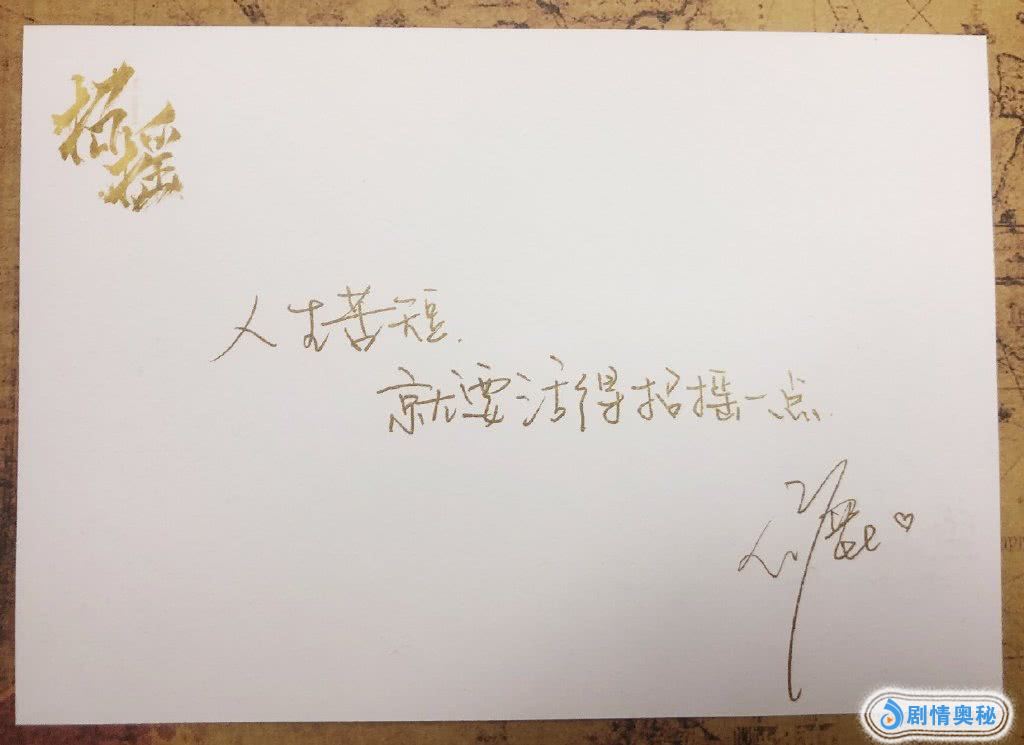 招摇
人生苦短.
就要活得招摇一点.
剧情奥秘